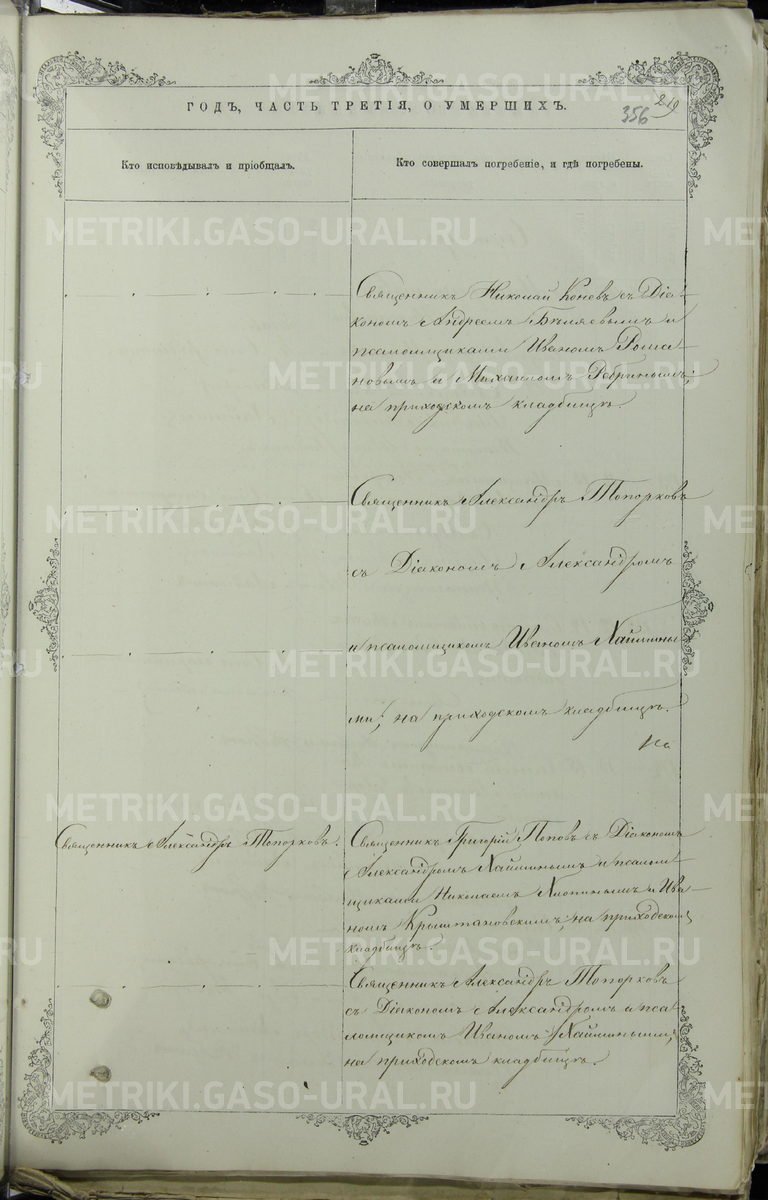 219
356
ГОДЪ, ЧАСТЬ ТРЕТІЯ, О УМЕРШИХЪ.
Кто исповѣдывалъ и пріобщалъ.
Кто совершалъ погребеніе, и гдѣ погребены.
Священникъ Николай Коневъ съ Діа-
кономъ Андреемъ Бѣляевымъ и
псаломщиками Иваномъ Рома-
новымъ и Михаиломъ Ребринымъ;
на приходскомъ кладбищѣ.
Священникъ Александръ Топорковъ
съ Діакономъ Александромъ
и псаломщикомъ Иваномъ Хаймины-
ми, на приходскомъ кладбищѣ.
Священникъ Александръ Топорковъ.
Священникъ Григорій Поповъ съ Діакономъ
Александромъ Хайминымъ и псалом-
щиками Николаемъ Хлопинымъ и Ива-
номъ Крыштановскимъ, на приходскомъ
кладбищѣ.
Священникъ Александръ Топорковъ
съ Діакономъ Александромъ и пса-
ломщикомъ Иваномъ Хаймиными,
на приходскомъ кладбищѣ.
METRIKI.GASO-URAL.RU